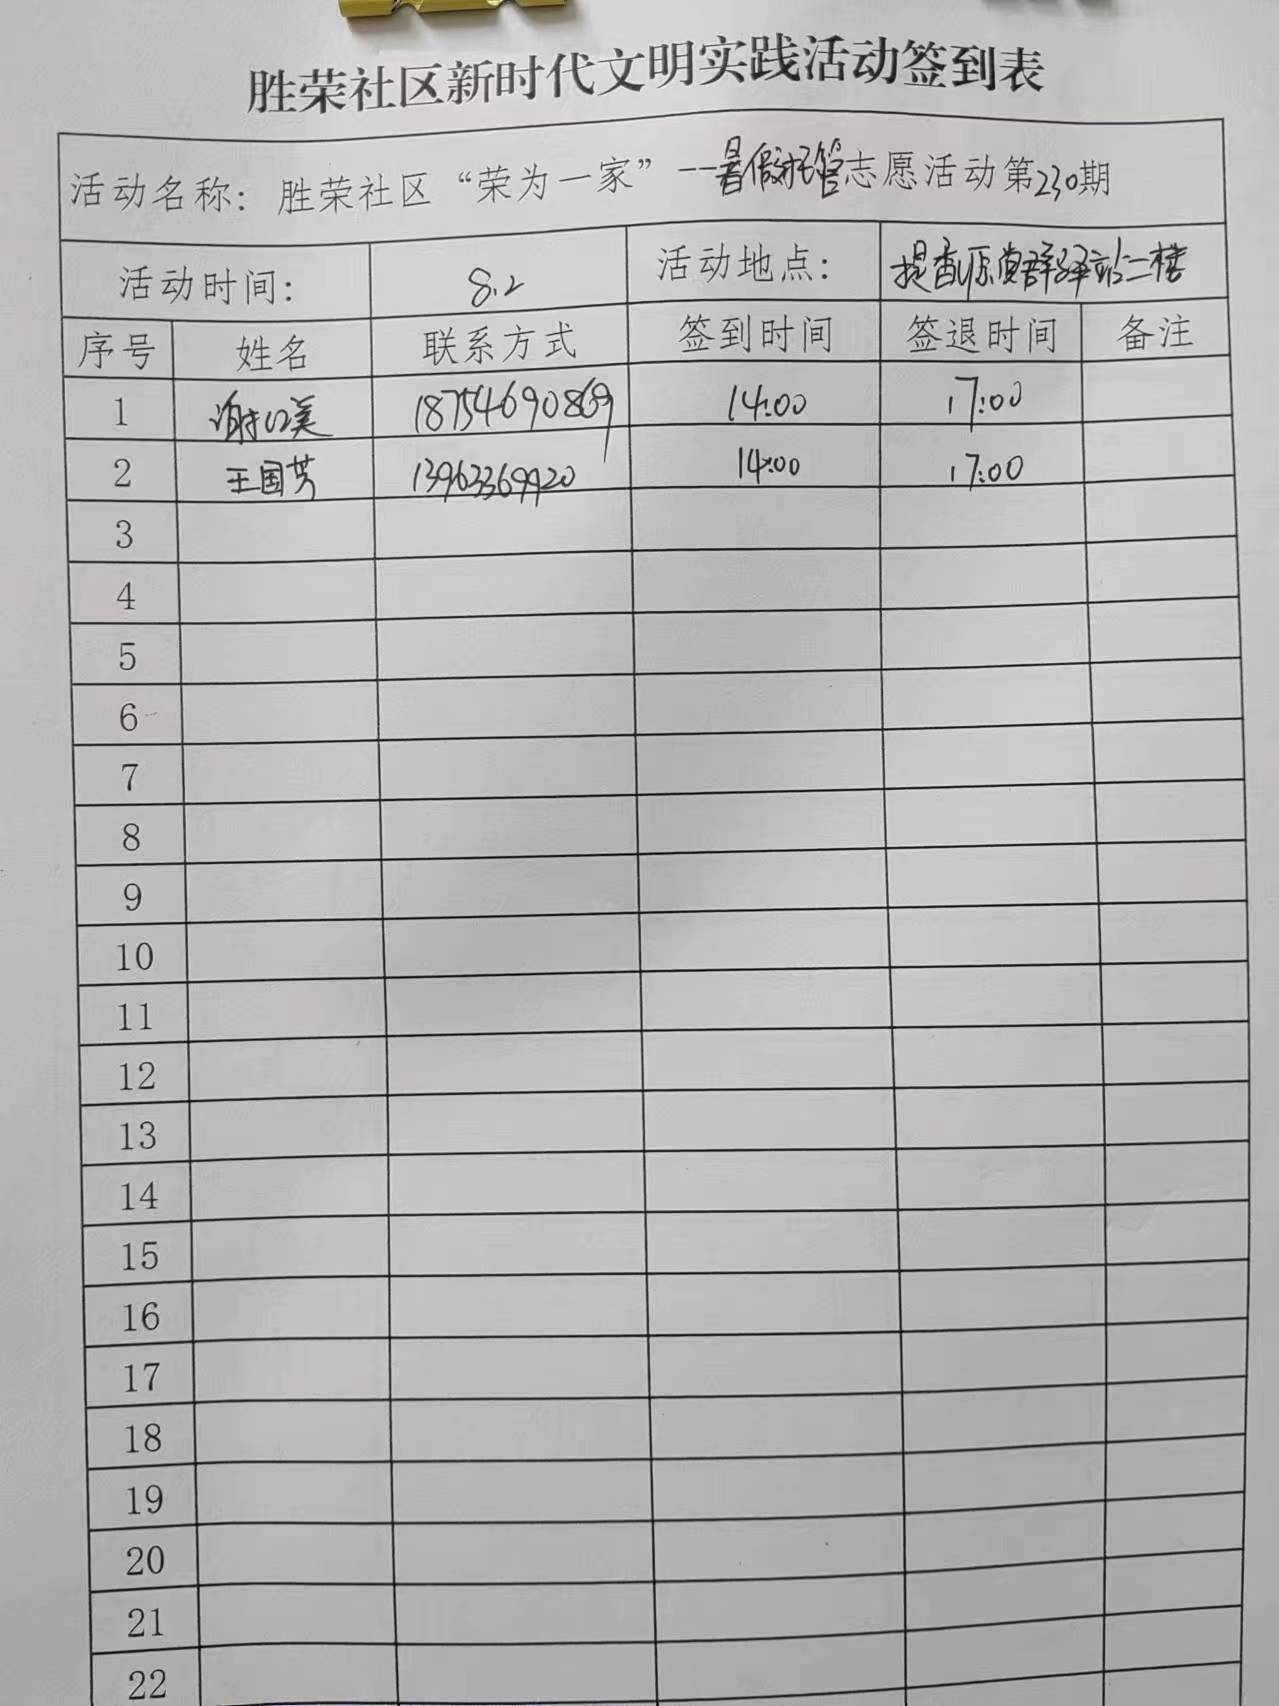 胜荣社区新时代文明实践活动签到表
活动名称：胜荣社区“荣为一家”--暑假托管志愿活动第230期
活动时间： 8.2 活动地点： 提香源党群驿站二楼
序号 姓名 联系方式 签到时间 签退时间 备注
1 谢 美 18754690869 14:00 17:00
2 王国芳 13963369920 14:00 17:00
3
4
5
6
7
8
9
10
11
12
13
14
15
16
17
18
19
20
21
22